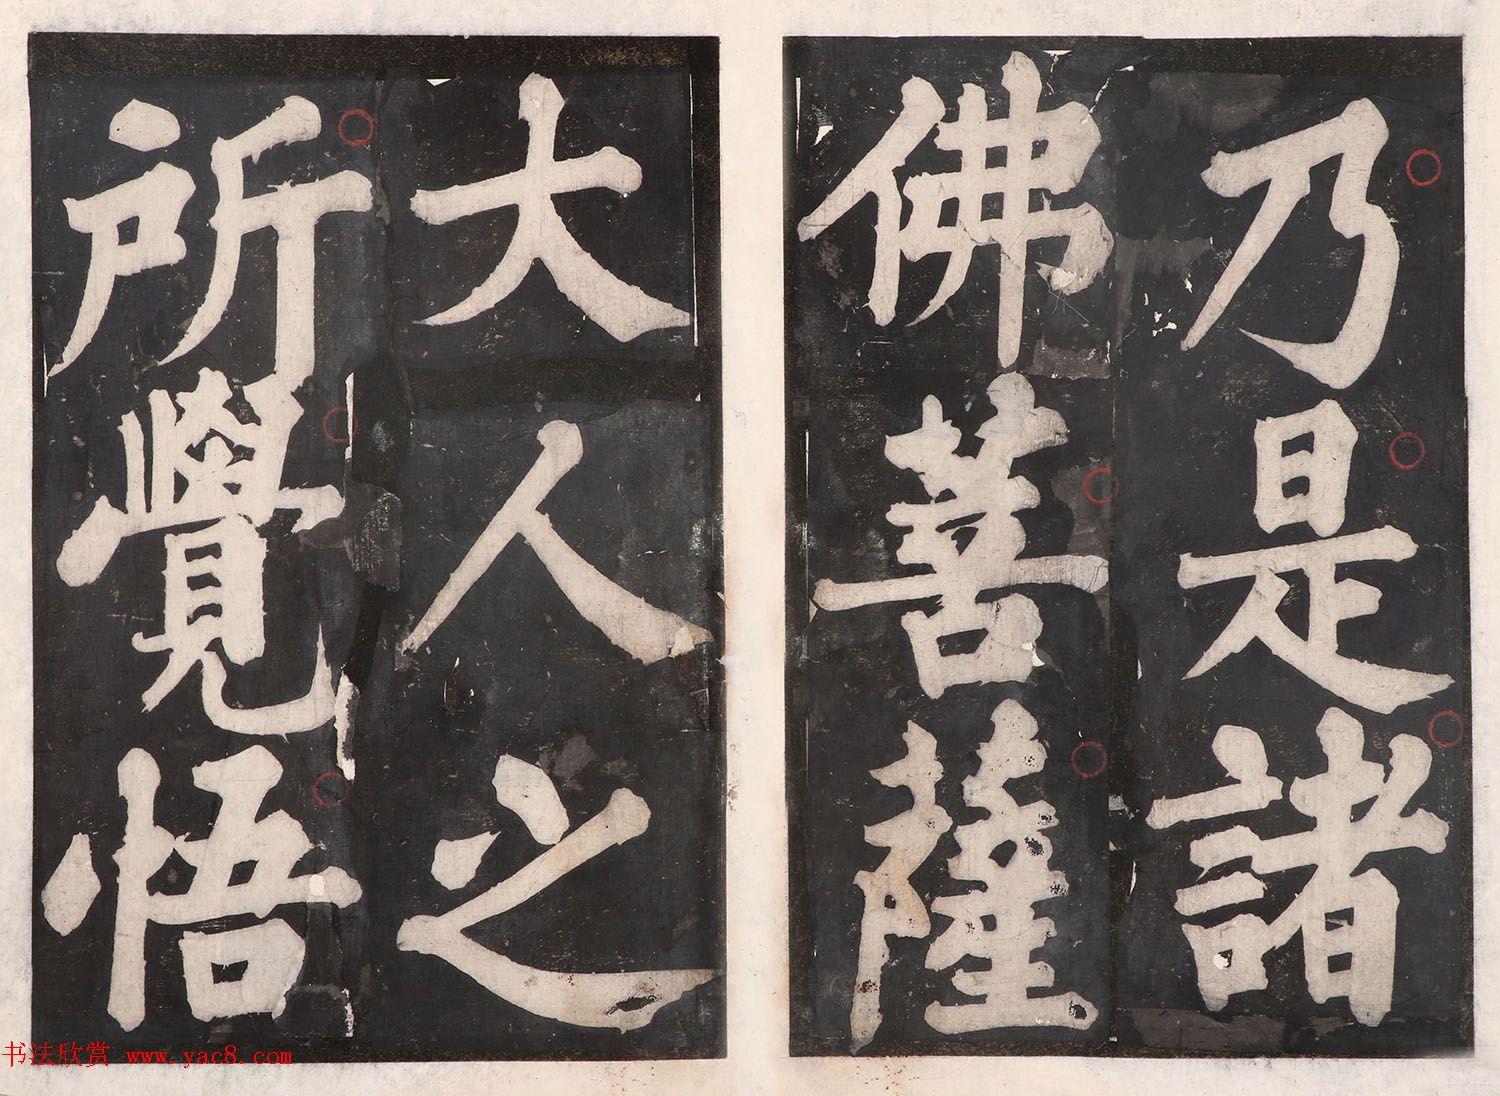 乃是諸
佛菩薩
大人之
所覺悟
书法欣赏 www.yac8.com